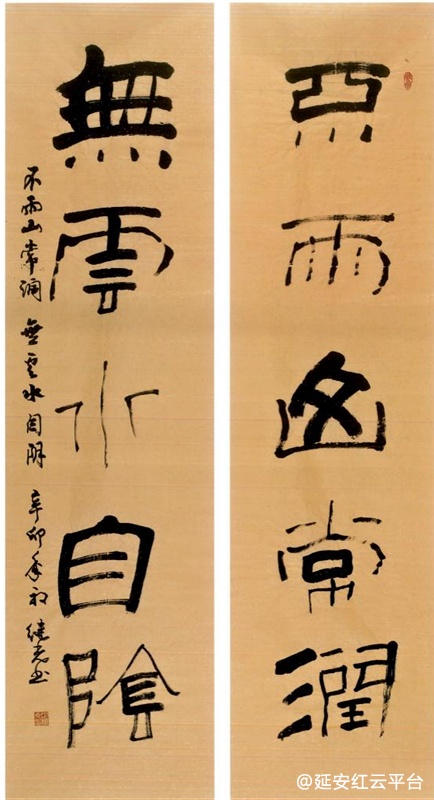 不雨山常潤
無雲水自陰
不雨山常润 無云水自阴 辛卯年初 书
@延安红云平台